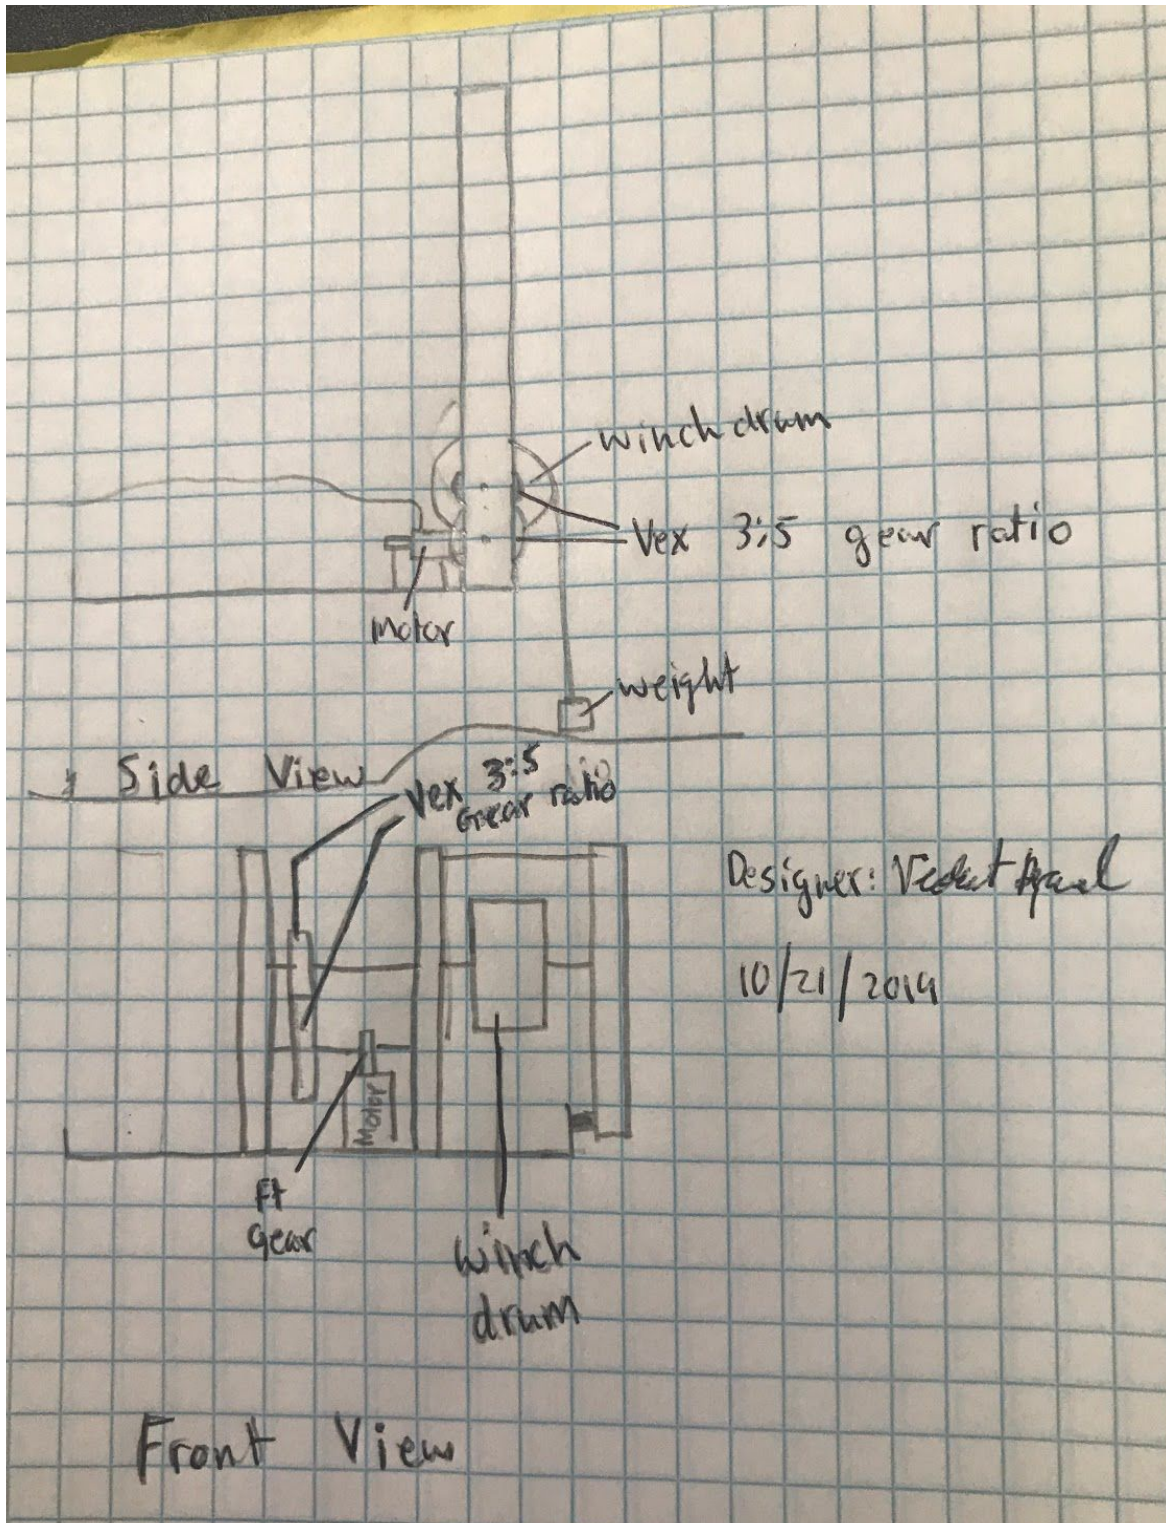 winch drum
Vex 3:5 gear ratio
Motor
weight
Side View
Vex 3:5
Gear ratio
Designer:
10/21/2019
Motor
Ft
gear
winch
drum
Front View